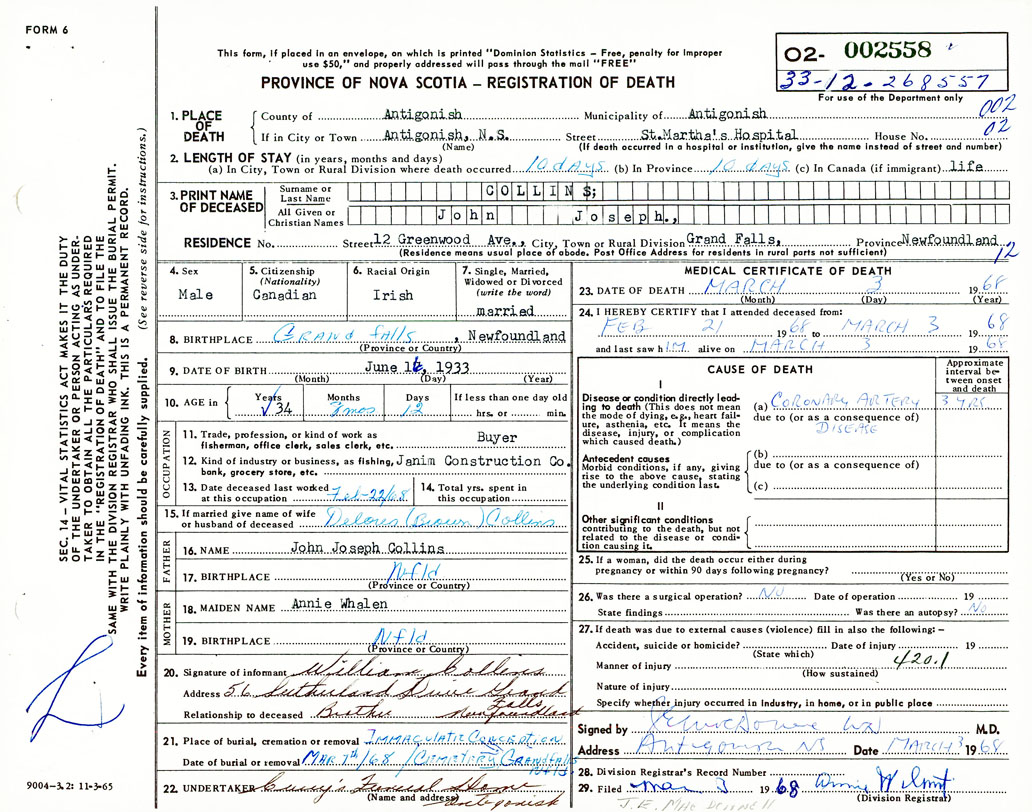 FORM 6
This form, if placed in an envelope, on which is printed "Dominion Statistics – Free, penalty for improper
use $50," and properly addressed will pass through the mail "FREE"
PROVINCE OF NOVA SCOTIA – REGISTRATION OF DEATH
02- 002558
33-12-268557
For use of the Department only
002
02
1. PLACE OF DEATH
County of Antigonish Municipality of Antigonish
If in City or Town Antigonish, N.S. Street St.Martha's Hospital House No.
(Name) (If death occurred in a hospital or institution, give the name instead of street and number)
2. LENGTH OF STAY (in years, months and days)
(a) In City, Town or Rural Division where death occurred 10 days (b) In Province 10 days (c) In Canada (if immigrant) life
3. PRINT NAME OF DECEASED
Surname or Last Name COLLINS;
All Given or Christian Names John Joseph.,
RESIDENCE No. Street 12 Greenwood Ave., City, Town or Rural Division Grand Falls, Province Newfoundland
(Residence means usual place of abode. Post Office Address for residents in rural parts not sufficient)
12
4. Sex
Male
5. Citizenship
(Nationality)
Canadian
6. Racial Origin
Irish
7. Single, Married,
Widowed or Divorced
(write the word)
married
8. BIRTHPLACE Grand Falls, Newfoundland
(Province or Country)
9. DATE OF BIRTH June 1 , 1933
(Month) (Day) (Year)
10. AGE in Years 34 Months Days 12 If less than one day old
hrs. or min.
OCCUPATION
11. Trade, profession, or kind of work as
fisherman, office clerk, sales clerk, etc. Buyer
12. Kind of industry or business, as fishing, Janim Construction Co.
bank, grocery store, etc.
13. Date deceased last worked
at this occupation Feb-22/68
14. Total yrs. spent in
this occupation
15. If married give name of wife
or husband of deceased Delores (Brown) Collins
FATHER
16. NAME John Joseph Collins
17. BIRTHPLACE Nfld
(Province or Country)
MOTHER
18. MAIDEN NAME Annie Whalen
19. BIRTHPLACE Nfld
(Province or Country)
20. Signature of informant William Collins
Address 56 Sutherland Drive Grand Falls
Relationship to deceased Brother Newfoundland
21. Place of burial, cremation or removal Immaculate Conception
Date of burial or removal Mar 7th/68 Cemetery Grand Falls Nfld
22. UNDERTAKER Curry's Funeral Home
(Name and address) Antigonish
MEDICAL CERTIFICATE OF DEATH
23. DATE OF DEATH MARCH 3 1968
(Month) (Day) (Year)
24. I HEREBY CERTIFY that I attended deceased from:
FEB 21 1968 to MARCH 3 1968
and last saw h IM alive on MARCH 3 1968
CAUSE OF DEATH
Approximate
interval be-
tween onset
and death
I
Disease or condition directly lead-
ing to death (This does not
mean the mode of dying, e.g., heart fail-
ure, asthenia, etc. It means the
disease, injury, or complication
which caused death.)
(a) CORONARY ARTERY 3 YRS
due to (or as a consequence of)
DISEASE
Antecedent causes
Morbid conditions, if any, giving
rise to the above cause, stating
the underlying condition last.
(b)
due to (or as a consequence of)
(c)
II
Other significant conditions
contributing to the death, but not
related to the disease or condi-
tion causing it.
25. If a woman, did the death occur either during
pregnancy or within 90 days following pregnancy?
(Yes or No)
26. Was there a surgical operation? NO Date of operation 19
State findings Was there an autopsy? NO
27. If death was due to external causes (violence) fill in also the following: –
Accident, suicide or homicide? Date of injury 19
(State which)
Manner of injury 420.1
(How sustained)
Nature of injury
Specify whether injury occurred in Industry, in home, or in public place
Signed by M.D.
Address Antigonish NS Date MARCH 3 1968
28. Division Registrar's Record Number
29. Filed Mar 3 1968
(Division Registrar)
J.E. MacDonnell
SEC. 14 – VITAL STATISTICS ACT MAKES IT THE DUTY
OF THE UNDERTAKER OR PERSON ACTING AS UNDER-
TAKER TO OBTAIN ALL THE PARTICULARS REQUIRED
IN THE "REGISTRATION OF DEATH" AND TO FILE THE
SAME WITH THE DIVISION REGISTRAR WHO SHALL ISSUE THE BURIAL PERMIT.
WRITE PLAINLY WITH UNFADING INK. THIS IS A PERMANENT RECORD.
Every item of information should be carefully supplied. (See reverse side for instructions.)
9004-3.2: 11-3-65